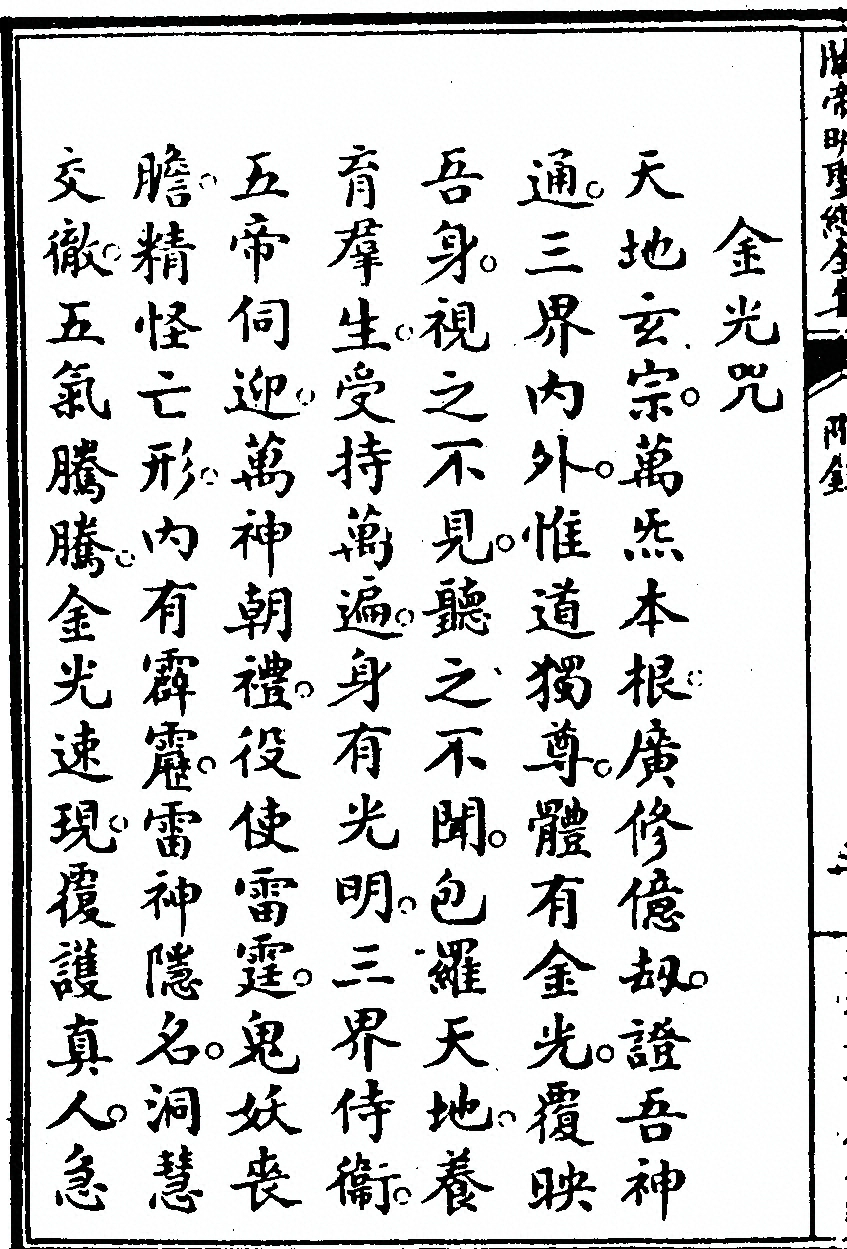 金光咒
天地玄宗。萬炁本根。廣修億劫。證吾神
通。三界內外。惟道獨尊。體有金光。覆映
吾身。視之不見。聽之不聞。包羅天地。養
育羣生。受持萬遍。身有光明。三界侍衞。
五帝伺迎。萬神朝禮。役使雷霆。鬼妖喪
膽。精怪亡形。內有霹靂。雷神隱名。洞慧
交徹。五氣騰騰。金光速現。覆護真人。急